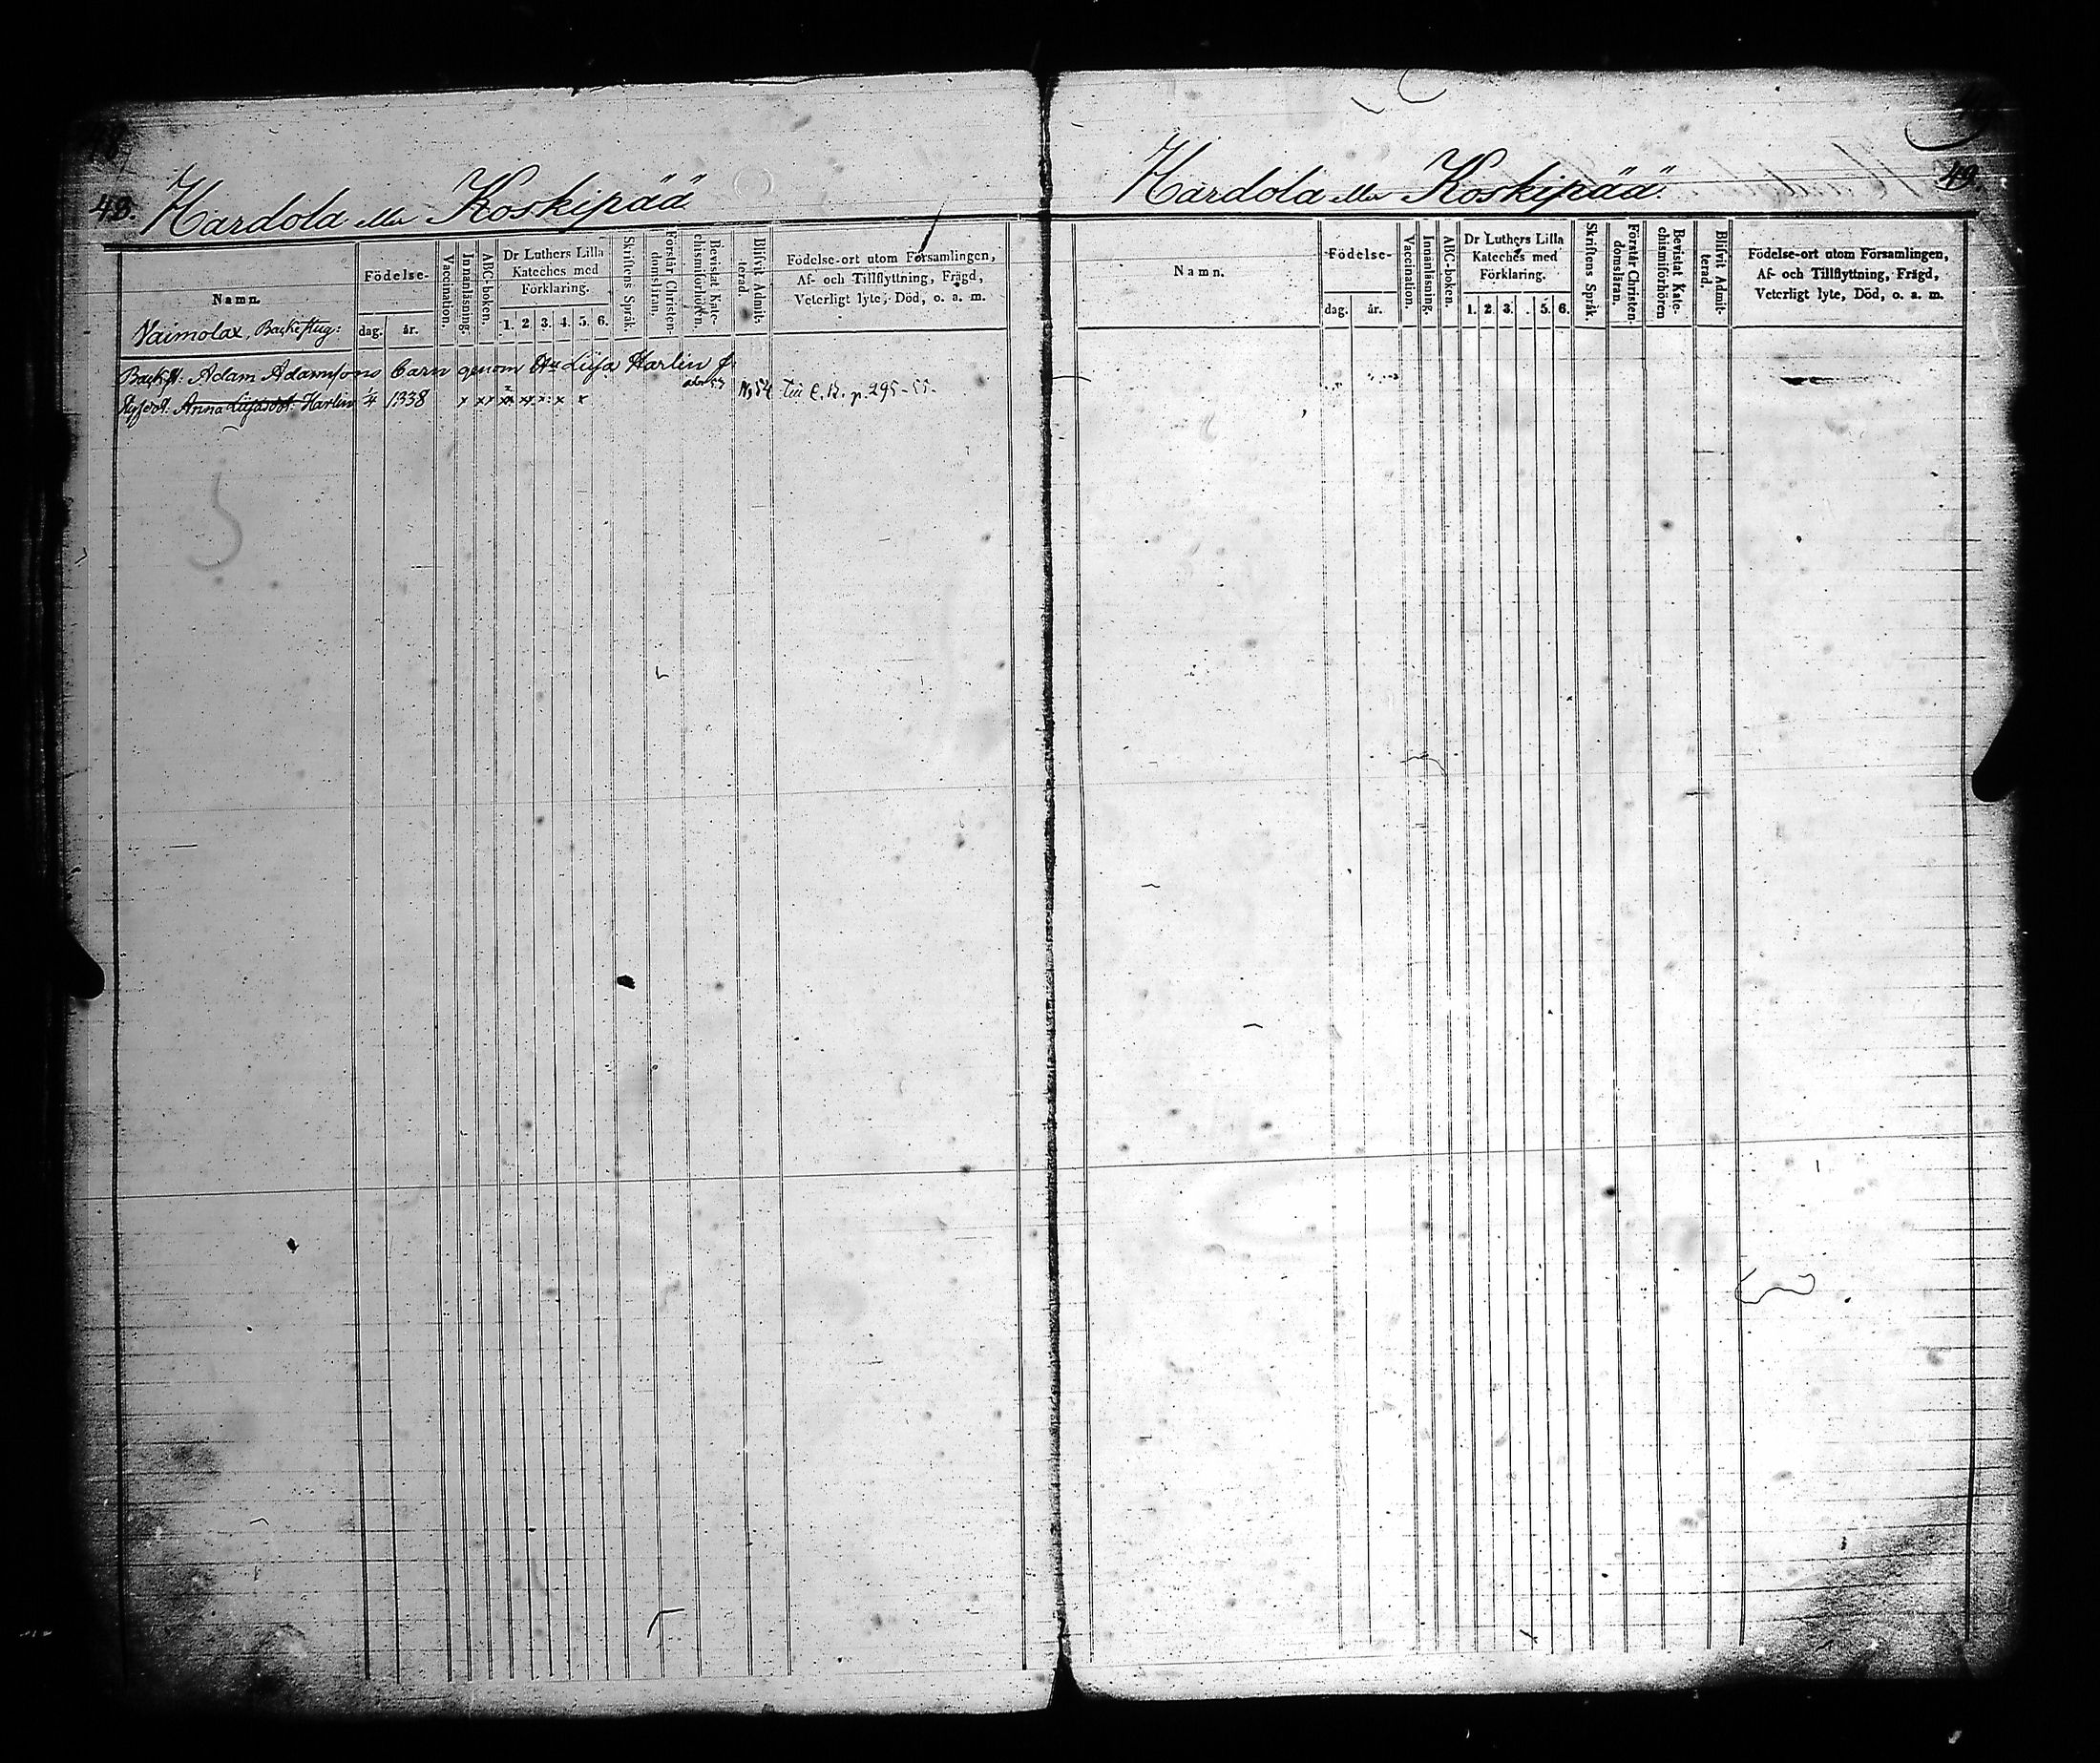 48. Hardola eller Koskipää
Namn.
Födelse-
dag. år.
Vaccination.
Innanläsning.
ABC-boken.
Dr Luthers Lilla
Kateches med
Förklaring.
1. 2. 3. 4. 5. 6.
Skriftens Språk.
Förstår Christen-
domsläran.
Bevistat Kate-
chismiförhören.
Blifvit Admit-
terad.
Födelse-ort utom Församlingen,
Af- och Tillflyttning, Frägd,
Veterligt lyte, Död, o. a. m.
Vaimolax, Backstug:
Backst: Adam Adamssons barn genom Liisa Harlin
Anna Harlin 1838 x xx x x 54 Till p. 295-55.
Hardola eller Koskipää. 49.
Namn.
Födelse-
dag. år.
Vaccination.
Innanläsning.
ABC-boken.
Dr Luthers Lilla
Kateches med
Förklaring.
1. 2. 3. . 5. 6.
Skriftens Språk.
Förstår Christen-
domsläran.
Bevistat Kate-
chismiförhören
Blifvit Admit-
terad.
Födelse-ort utom Församlingen,
Af- och Tillflyttning, Frägd,
Veterligt lyte, Död, o. a. m.